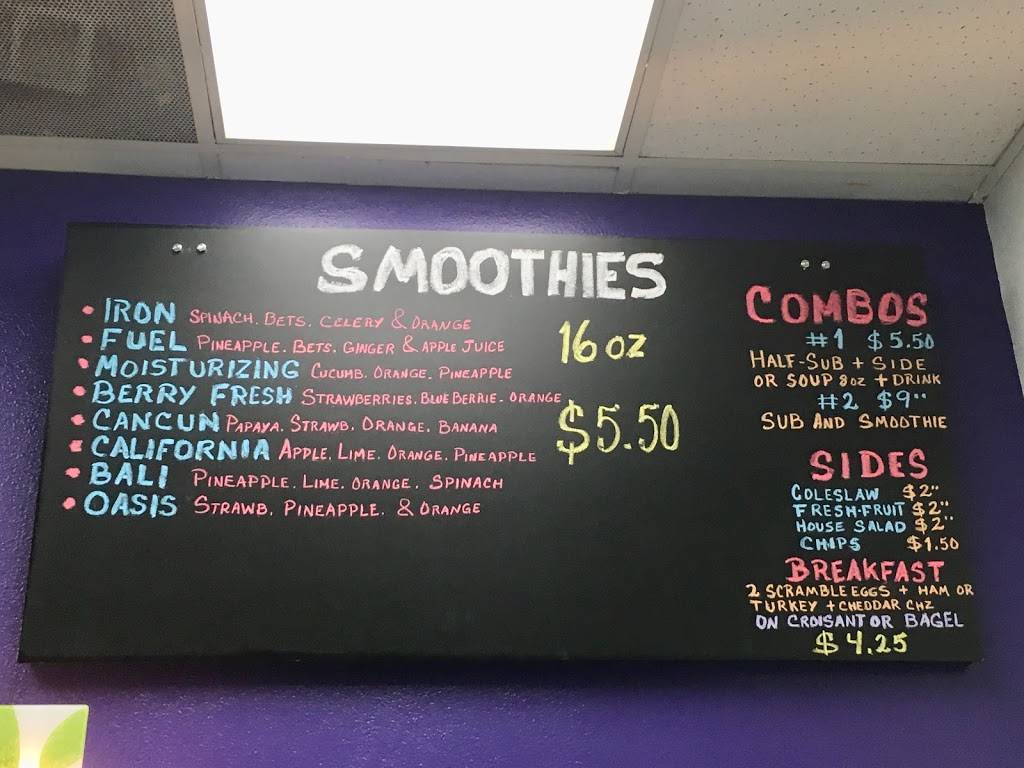 SMOOTHIES
• IRON SPINACH. BETS. CELERY & ORANGE
• FUEL PINEAPPLE. BETS. GINGER & APPLE JUICE
• MOISTURIZING CUCUMB. ORANGE. PINEAPPLE
• BERRY FRESH STRAWBERRIES. BLUE BERRIE - ORANGE
• CANCUN PAPAYA. STRAWB. ORANGE. BANANA
• CALIFORNIA APPLE. LIME. ORANGE. PINEAPPLE
• BALI PINEAPPLE. LIME. ORANGE. SPINACH
• OASIS STRAWB. PINEAPPLE. & ORANGE
16 oz
$5.50
COMBOS
#1 $5.50
HALF-SUB + SIDE
OR SOUP 8oz + DRINK
#2 $9"
SUB AND SMOOTHIE
SIDES
COLESLAW $2"
FRESH-FRUIT $2"
HOUSE SALAD $2"
CHIPS $1.50
BREAKFAST
2 SCRAMBLE EGGS + HAM OR
TURKEY + CHEDDAR CHZ
ON CROISANT OR BAGEL
$4.25